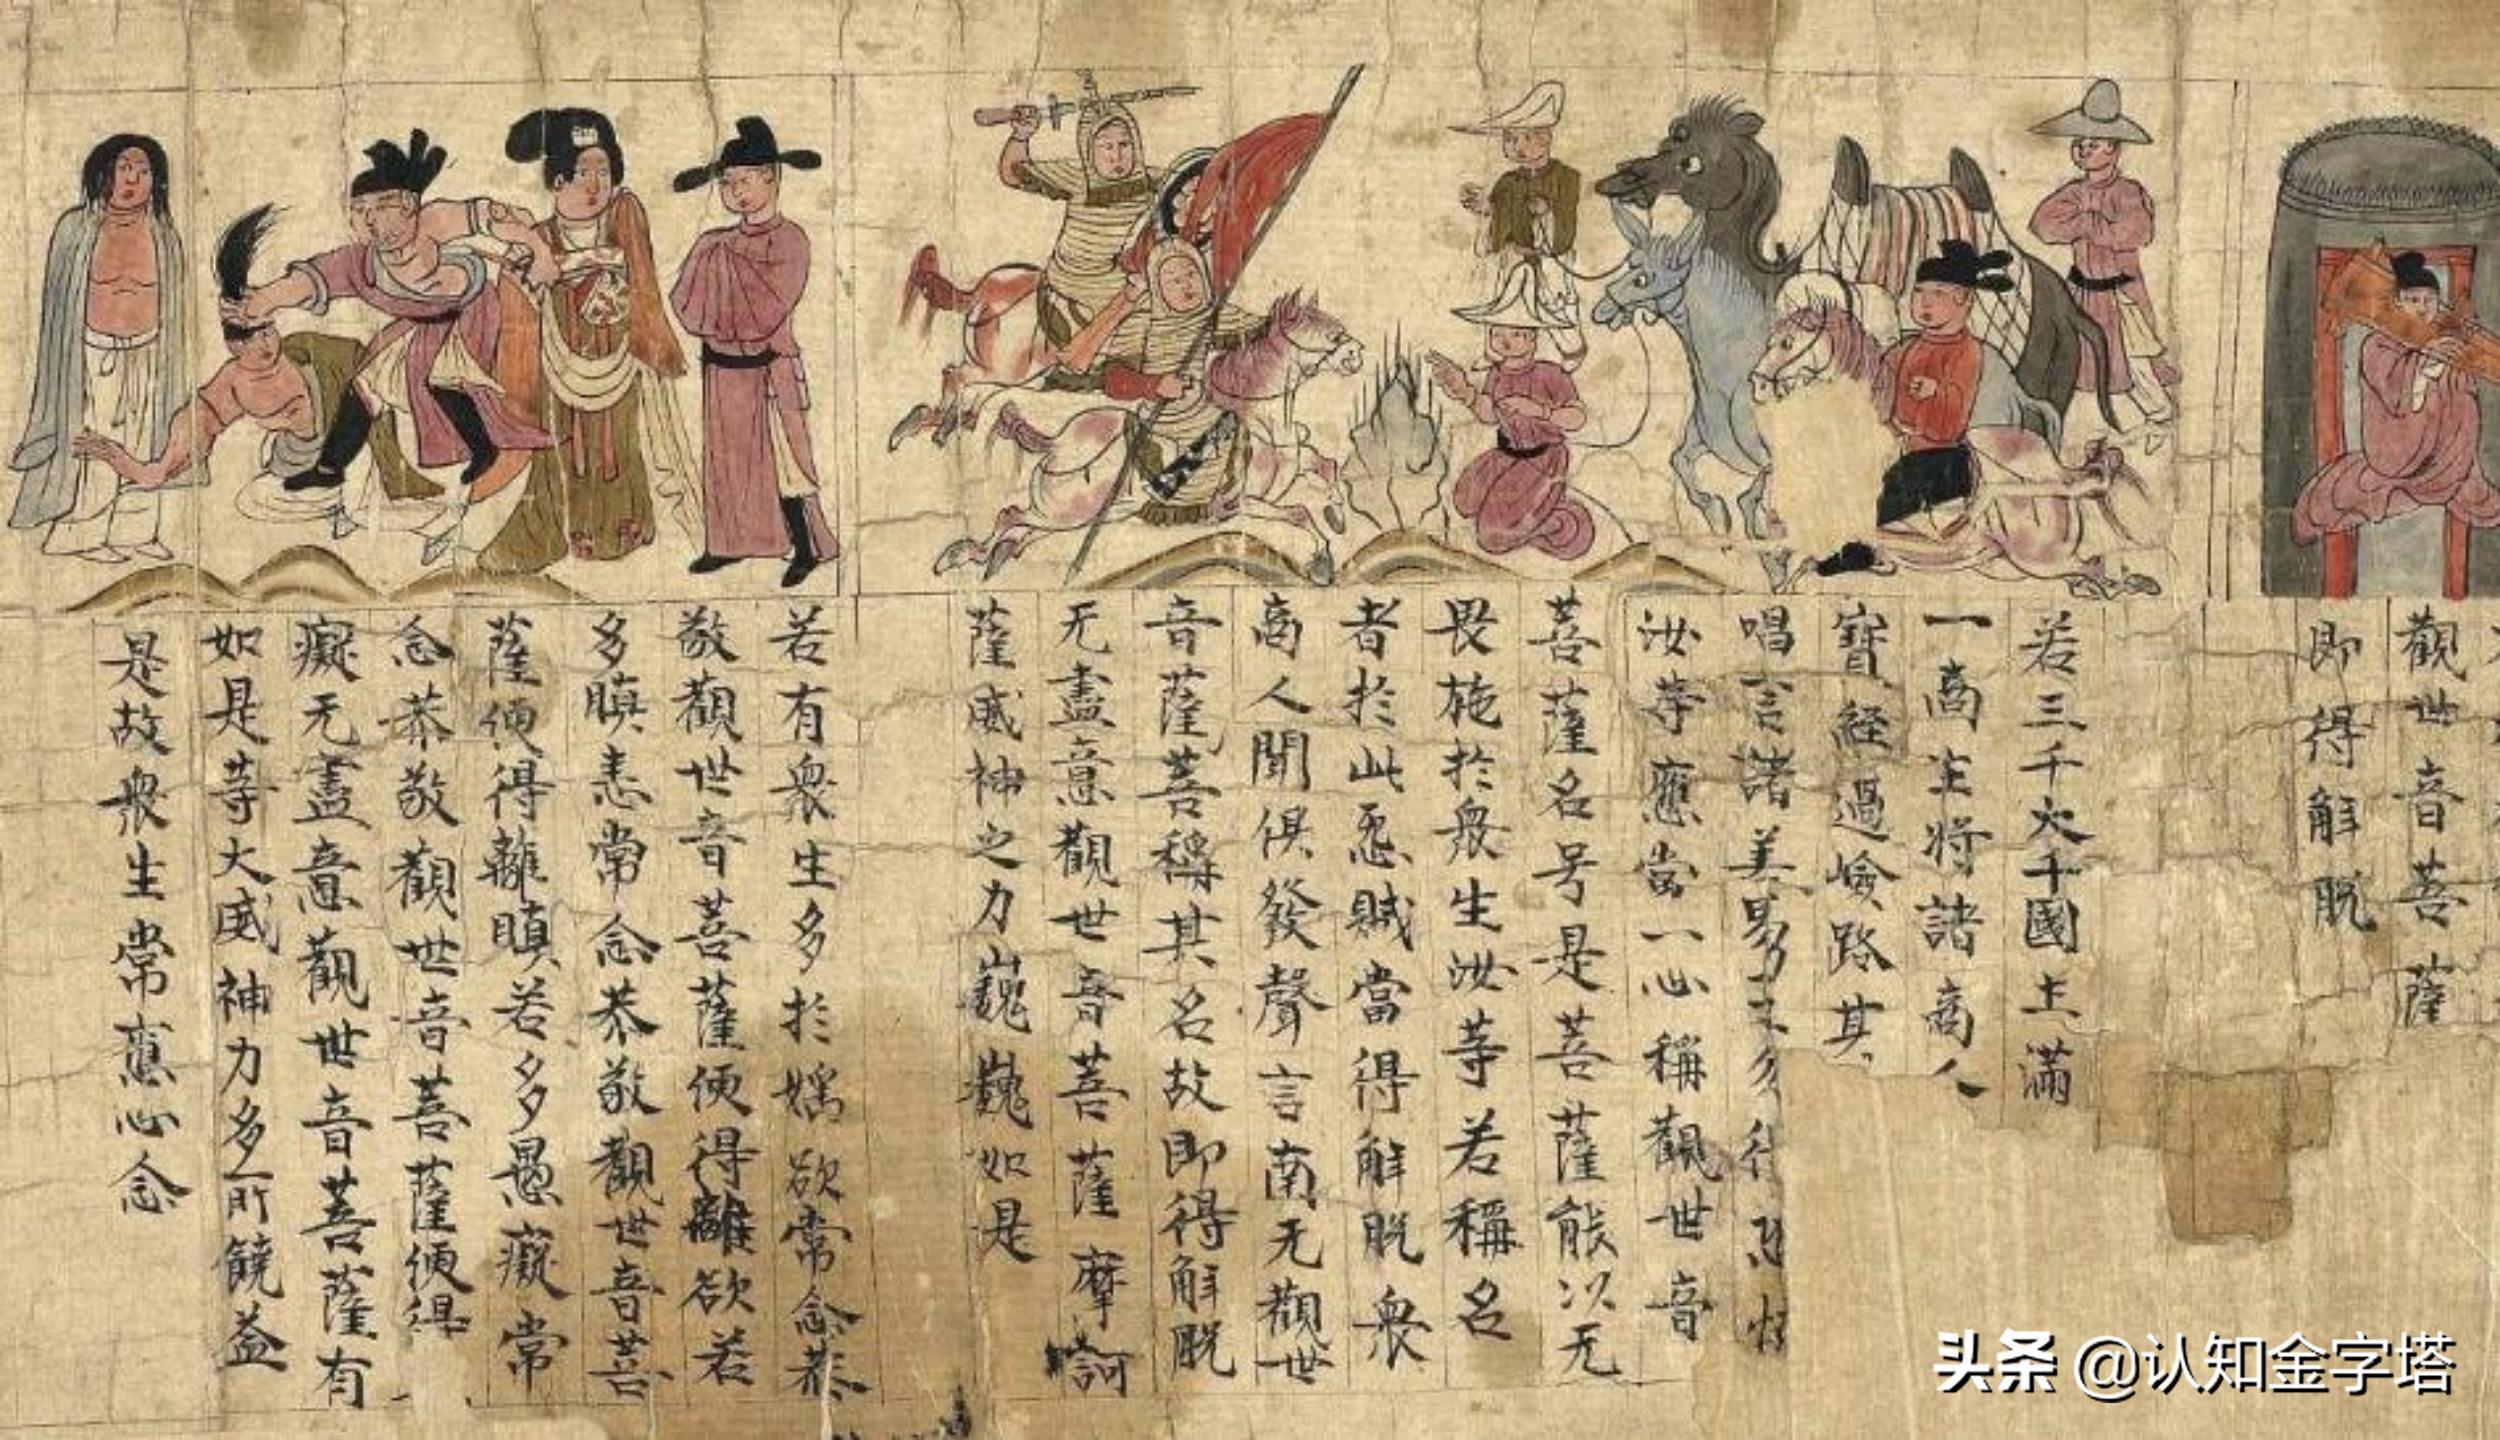 觀世音菩薩
即得解脫
若三千大千國土滿
一商主将諸商人
寳経過嶮路其
唱言諸善男子
汝等應當一心稱觀世音
菩薩名号是菩薩能以无
畏施於衆生汝等若稱名
者於此惡賊當得解脫衆
商人聞俱發聲言南无觀世
音菩薩稱其名故即得解脫
无盡意觀世音菩薩摩訶
薩威神之力巍巍如是
若有衆生多於婬欲常念恭
敬觀世音菩薩便得離欲若
多瞋恚常念恭敬觀世音菩
薩便得離瞋若多愚癡常
念恭敬觀世音菩薩便得
癡无盡意觀世音菩薩有
如是等大威神力多所饒益
是故衆生常應心念
头条 @认知金字塔